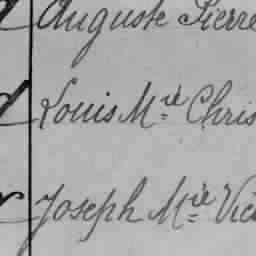 Auguste Pierre
Louis M.rie Chris
Joseph M.rie Vic